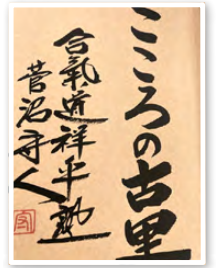 こころの古里
合氣道祥平塾
菅沼守人